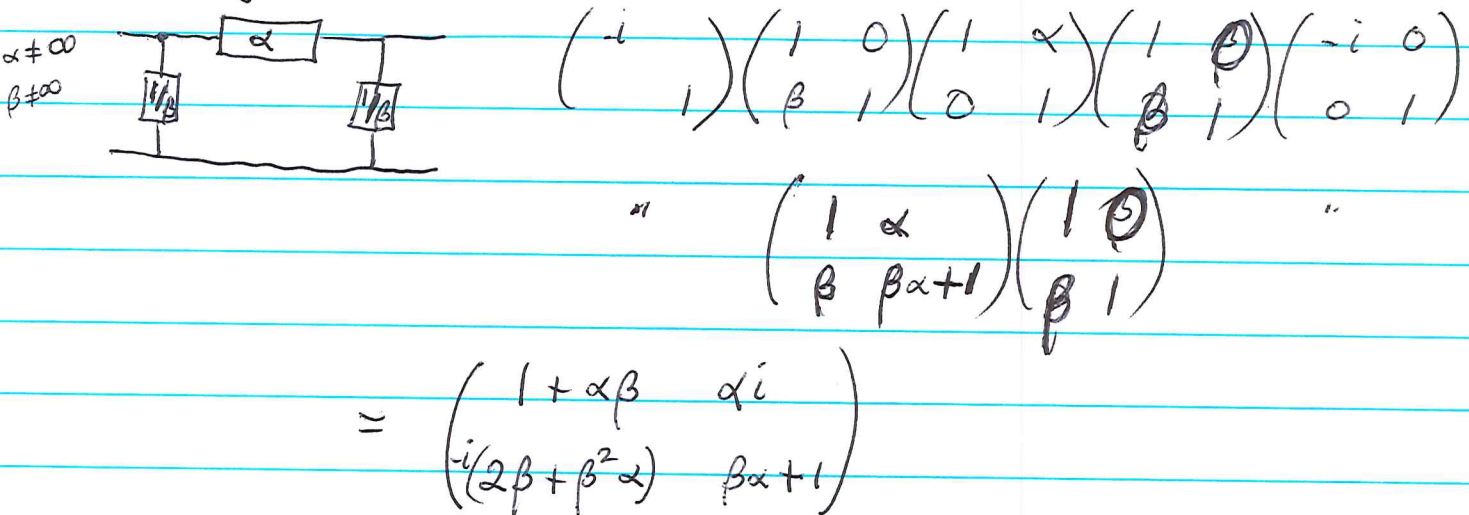 α ≠ ∞
β ≠ ∞
α
1/β 1/β
( -i   ; 1 ) ( 1 0 ; β 1 ) ( 1 α ; 0 1 ) ( 1 0 ; β 1 ) ( -i 0 ; 0 1 )
" ( 1 α ; β βα+1 ) ( 1 0 ; β 1 ) "
= ( 1 + αβ αi ; -i(2β + β²α) βα + 1 )